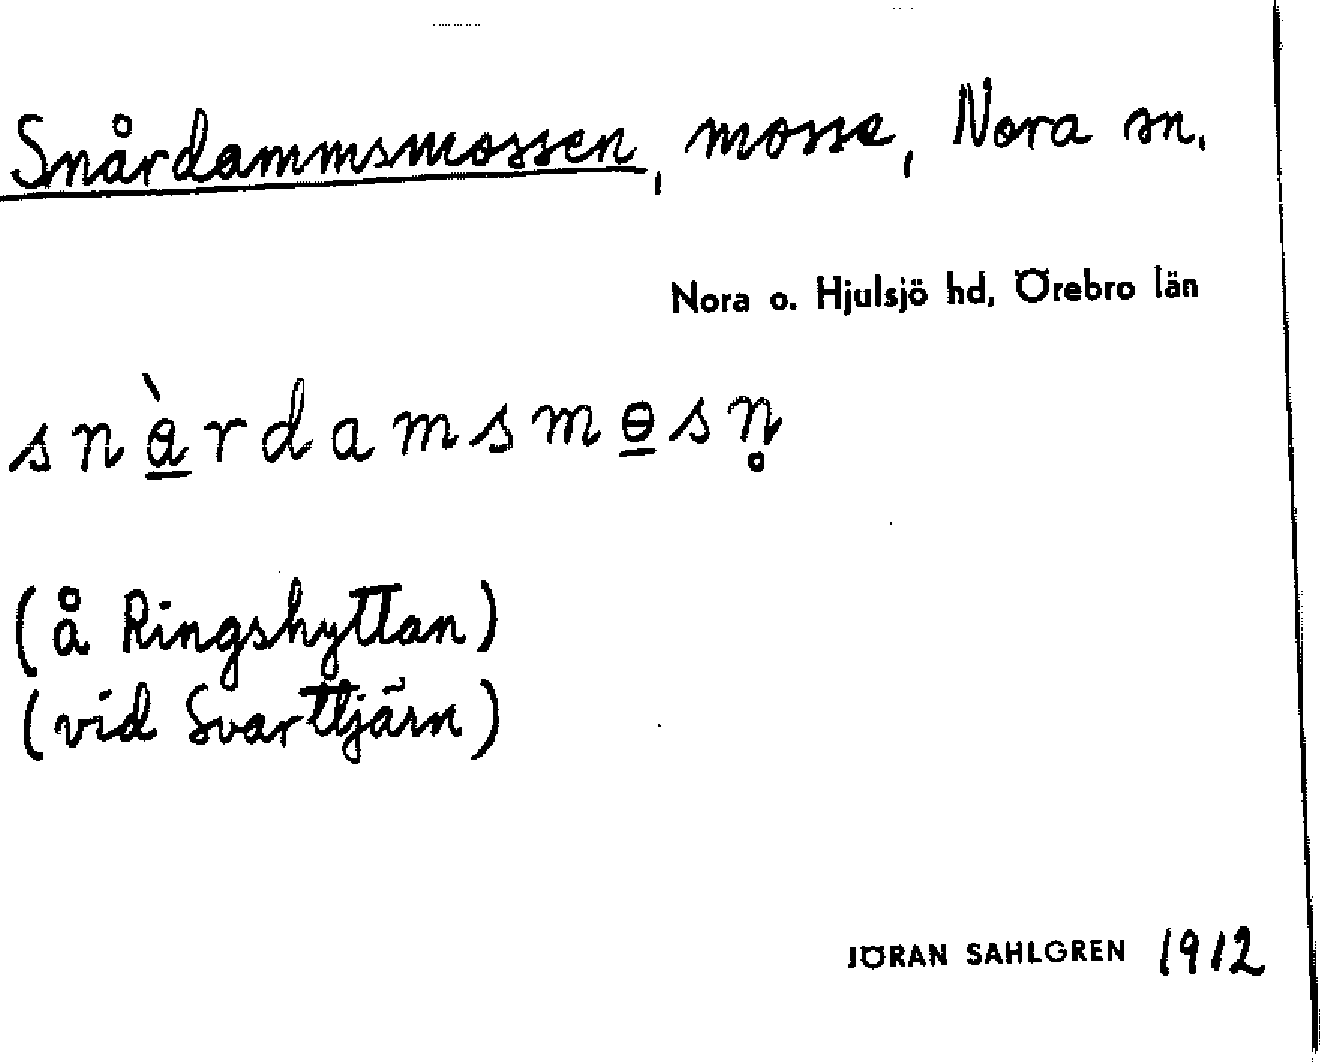 Snårdammsmossen, mosse, Nora sn.
Nora o. Hjulsjö hd, Örebro län
snàrdamsmɵsn̥
(å Ringshyttan)
(vid Svarttjärn)
JÖRAN SAHLGREN 1912